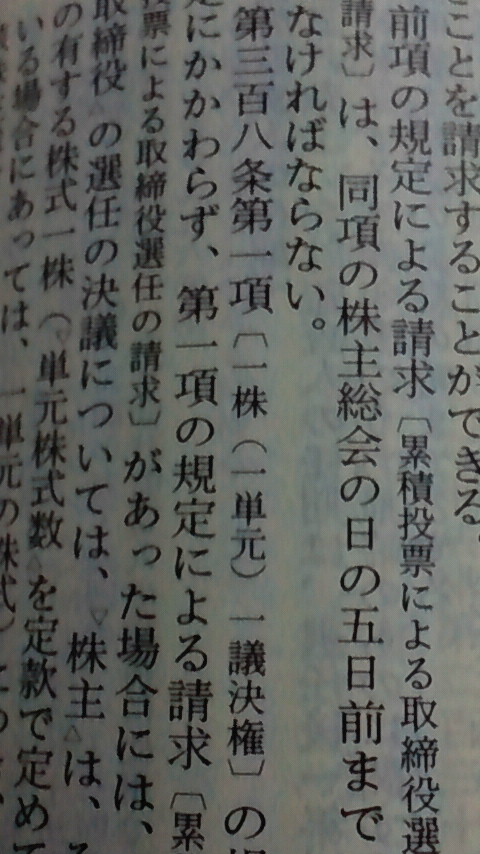 ことを請求することができる
前項の規定による請求〔累積投票による取締役選
請求〕は、同項の株主総会の日の五日前まで
なければならない。
第三百八条第一項〔一株(一単元)一議決権〕の
にかかわらず、第一項の規定による請求〔累
投票による取締役選任の請求〕があった場合には、
取締役の選任の決議については、▽株主△は、
の有する株式一株(▽単元株式数△を定款で定めて
いる場合にあっては、一単元の株式)